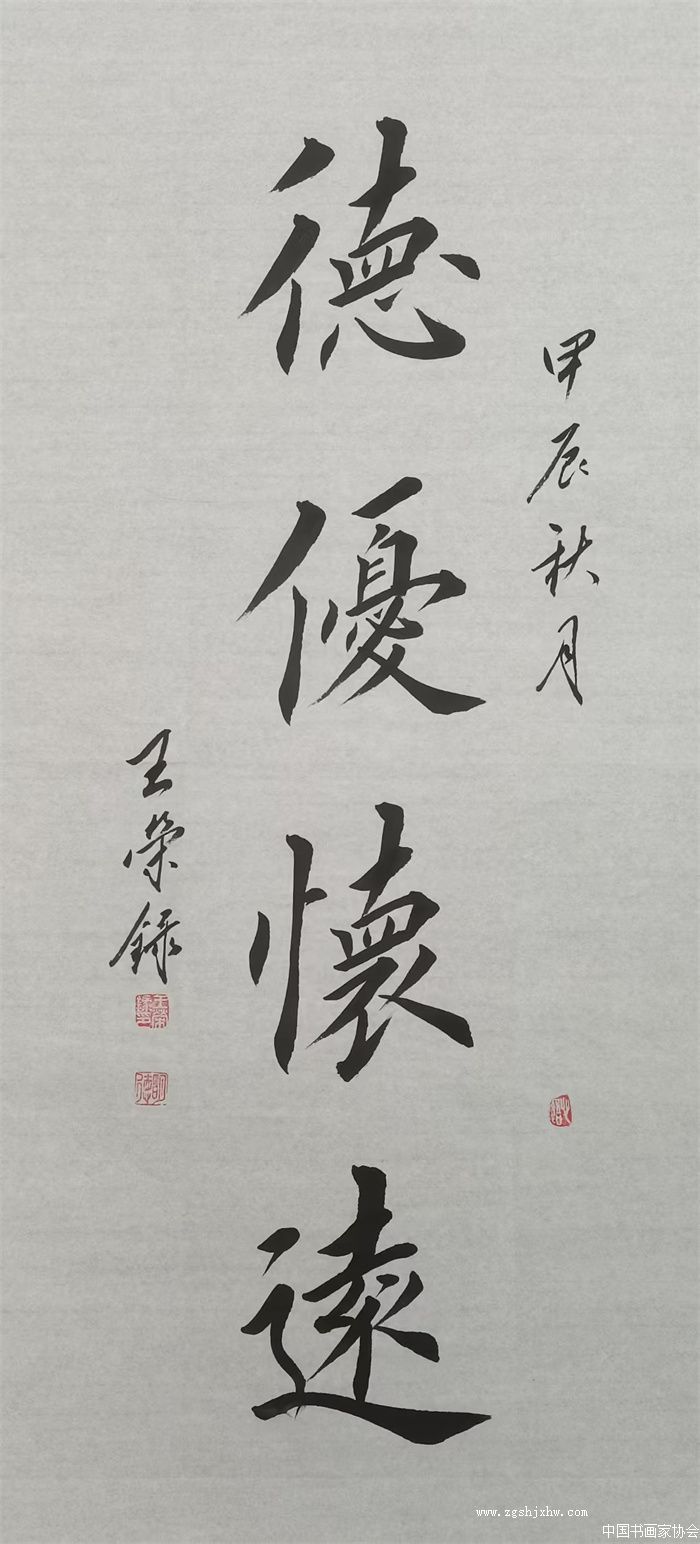 甲辰秋月
德優懷遠
王榮録
www.zgshjxhw.com
中国书画家协会